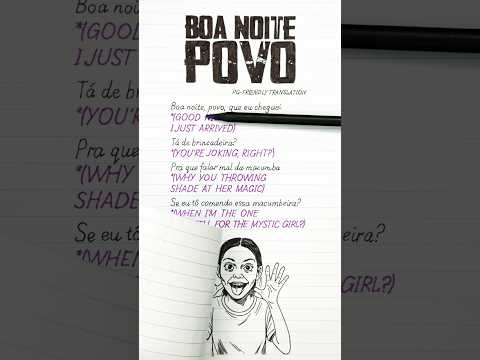 BOA NOITE
POVO
PG-FRIENDLY TRANSLATION
Boa noite, povo, que eu cheguei
*(GOOD
I JUST ARRIVED)
Tá de brincadeira?
*(YOU'RE JOKING, RIGHT?)
Pra que falar mal da macumba
*(WHY YOU THROWING
SHADE AT HER MAGIC)
Se eu tô comendo essa macumbeira?
*(WHEN I'M THE ONE
FOR THE MYSTIC GIRL?)
Boa
*(GOOD
I JUST
Tá de
*(YOU'R
Pra que
*(WHY
SHADE
Se eu tô
*(WHEN
macumbeira?
GIRL?)